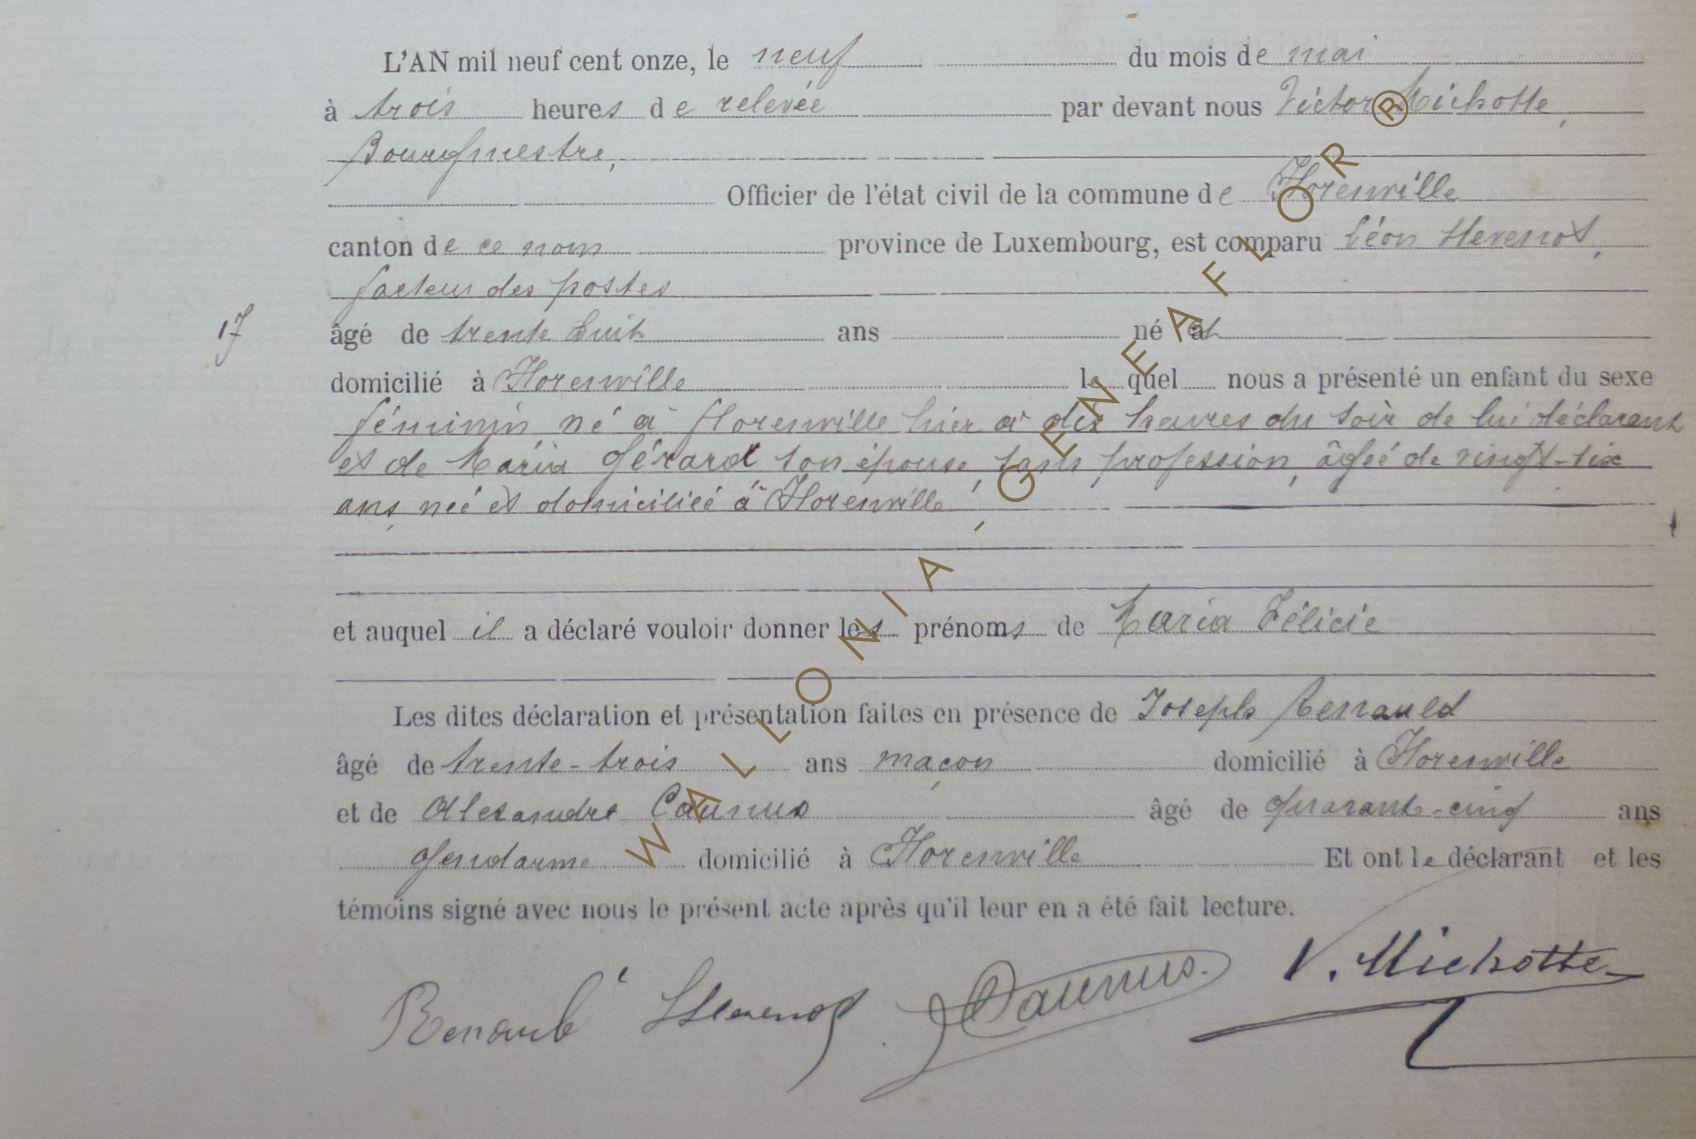 L'AN mil neuf cent onze, le neuf du mois de mai
à trois heures de relevée par devant nous Victor Michotte,
Bourgmestre,
Officier de l'état civil de la commune de Florenville
canton de ce nom province de Luxembourg, est comparu Léon Herenot,
facteur des postes
17 âgé de trente huit ans né et
domicilié à Florenville lequel nous a présenté un enfant du sexe
féminin né à Florenville hier à dix heures du soir de lui déclarant
et de Maria Gérard son épouse, sans profession, âgée de vingt-six
ans, née et domiciliée à Florenville
et auquel il a déclaré vouloir donner les prénoms de Maria Félicie
Les dites déclaration et présentation faites en présence de Joseph Renauld
âgé de trente-trois ans maçon domicilié à Florenville
et de Alexandre Caunus âgé de quarante-cinq ans
gendarme domicilié à Florenville Et ont le déclarant et les
témoins signé avec nous le présent acte après qu'il leur en a été fait lecture.
Renauld Herenot Caunus. V. Michotte
WALLONIA-GENEAFLOR®